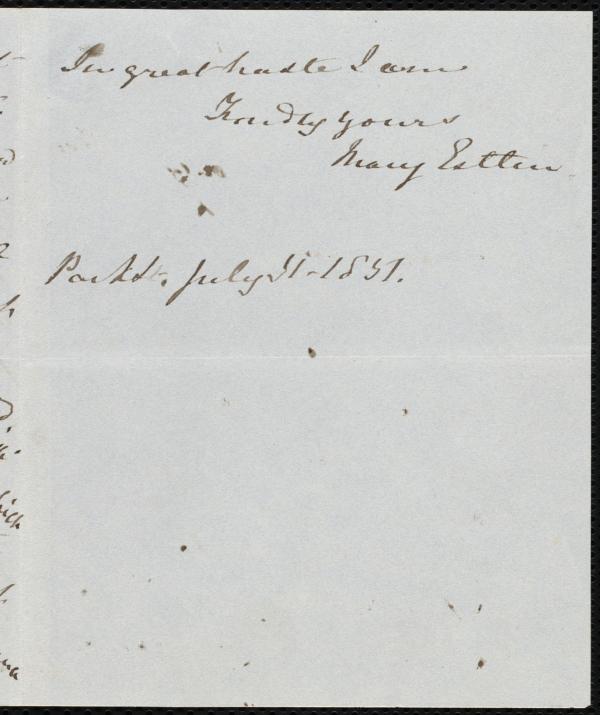 In great haste I am
Kindly yours
Mary Estlin
Park St. July 31-1851.